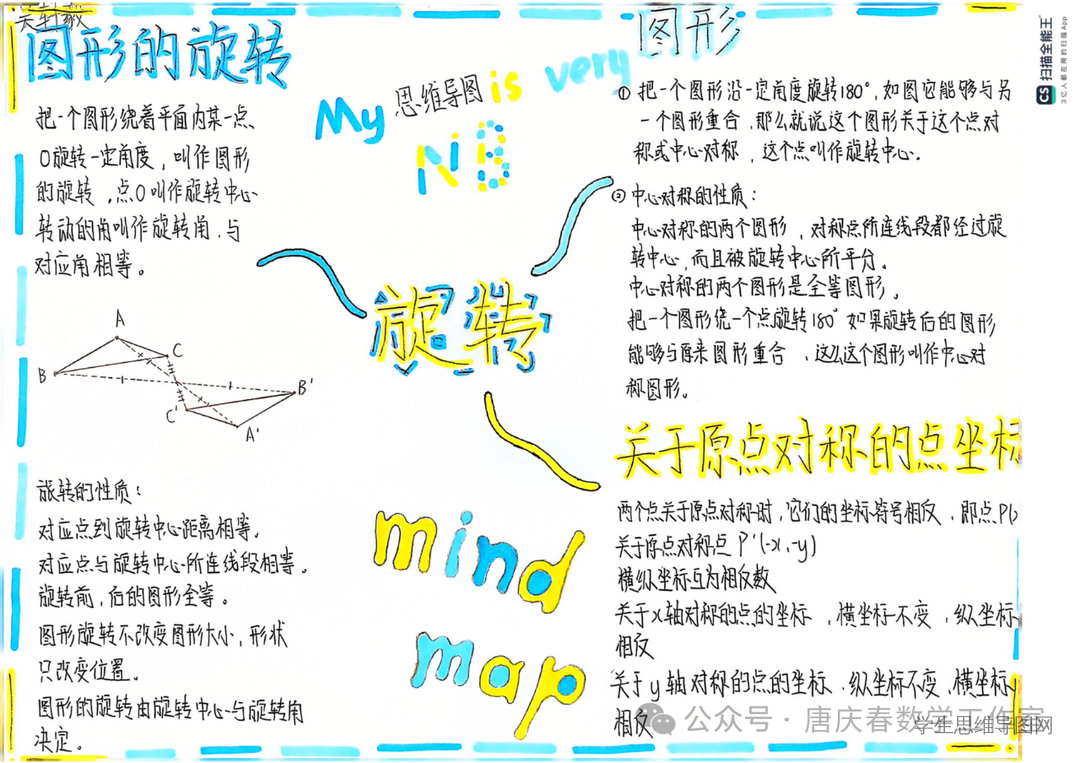 图形的旋转
把一个图形绕着平面内某一点
O旋转一定角度，叫作图形
的旋转，点O叫作旋转中心
转动的角叫作旋转角．与
对应角相等。
A
B
C
C'
B'
A'
旋转的性质：
对应点到旋转中心距离相等．
对应点与旋转中心所连线段相等。
旋转前，后的图形全等。
图形旋转不改变图形大小，形状
只改变位置。
图形的旋转由旋转中心与旋转角
决定。
My 思维导图 is very
NB
旋转
mind
map
图形
① 把一个图形沿一定角度旋转180°，如图它能够与另
一个图形重合，那么就说这个图形关于这个点对
称或中心对称，这个点叫作旋转中心．
② 中心对称的性质：
中心对称的两个图形，对称点所连线段都经过旋
转中心，而且被旋转中心所平分。
中心对称的两个图形是全等图形。
把一个图形绕一个点旋转180° 如果旋转后的图形
能够与原来图形重合，这么这个图形叫作中心对
称图形。
关于原点对称的点坐标
两个点关于原点对称时，它们的坐标符号相反，即点P(
关于原点对称点 P'(-x,-y)
横纵坐标互为相反数
关于x轴对称的点的坐标，横坐标不变，纵坐标
相反
关于y轴对称的点的坐标．纵坐标不变，横坐标
相反
CS 扫描全能王
3亿人都在用的扫描App
公众号 · 唐庆春数学工作室
学生思维导图网